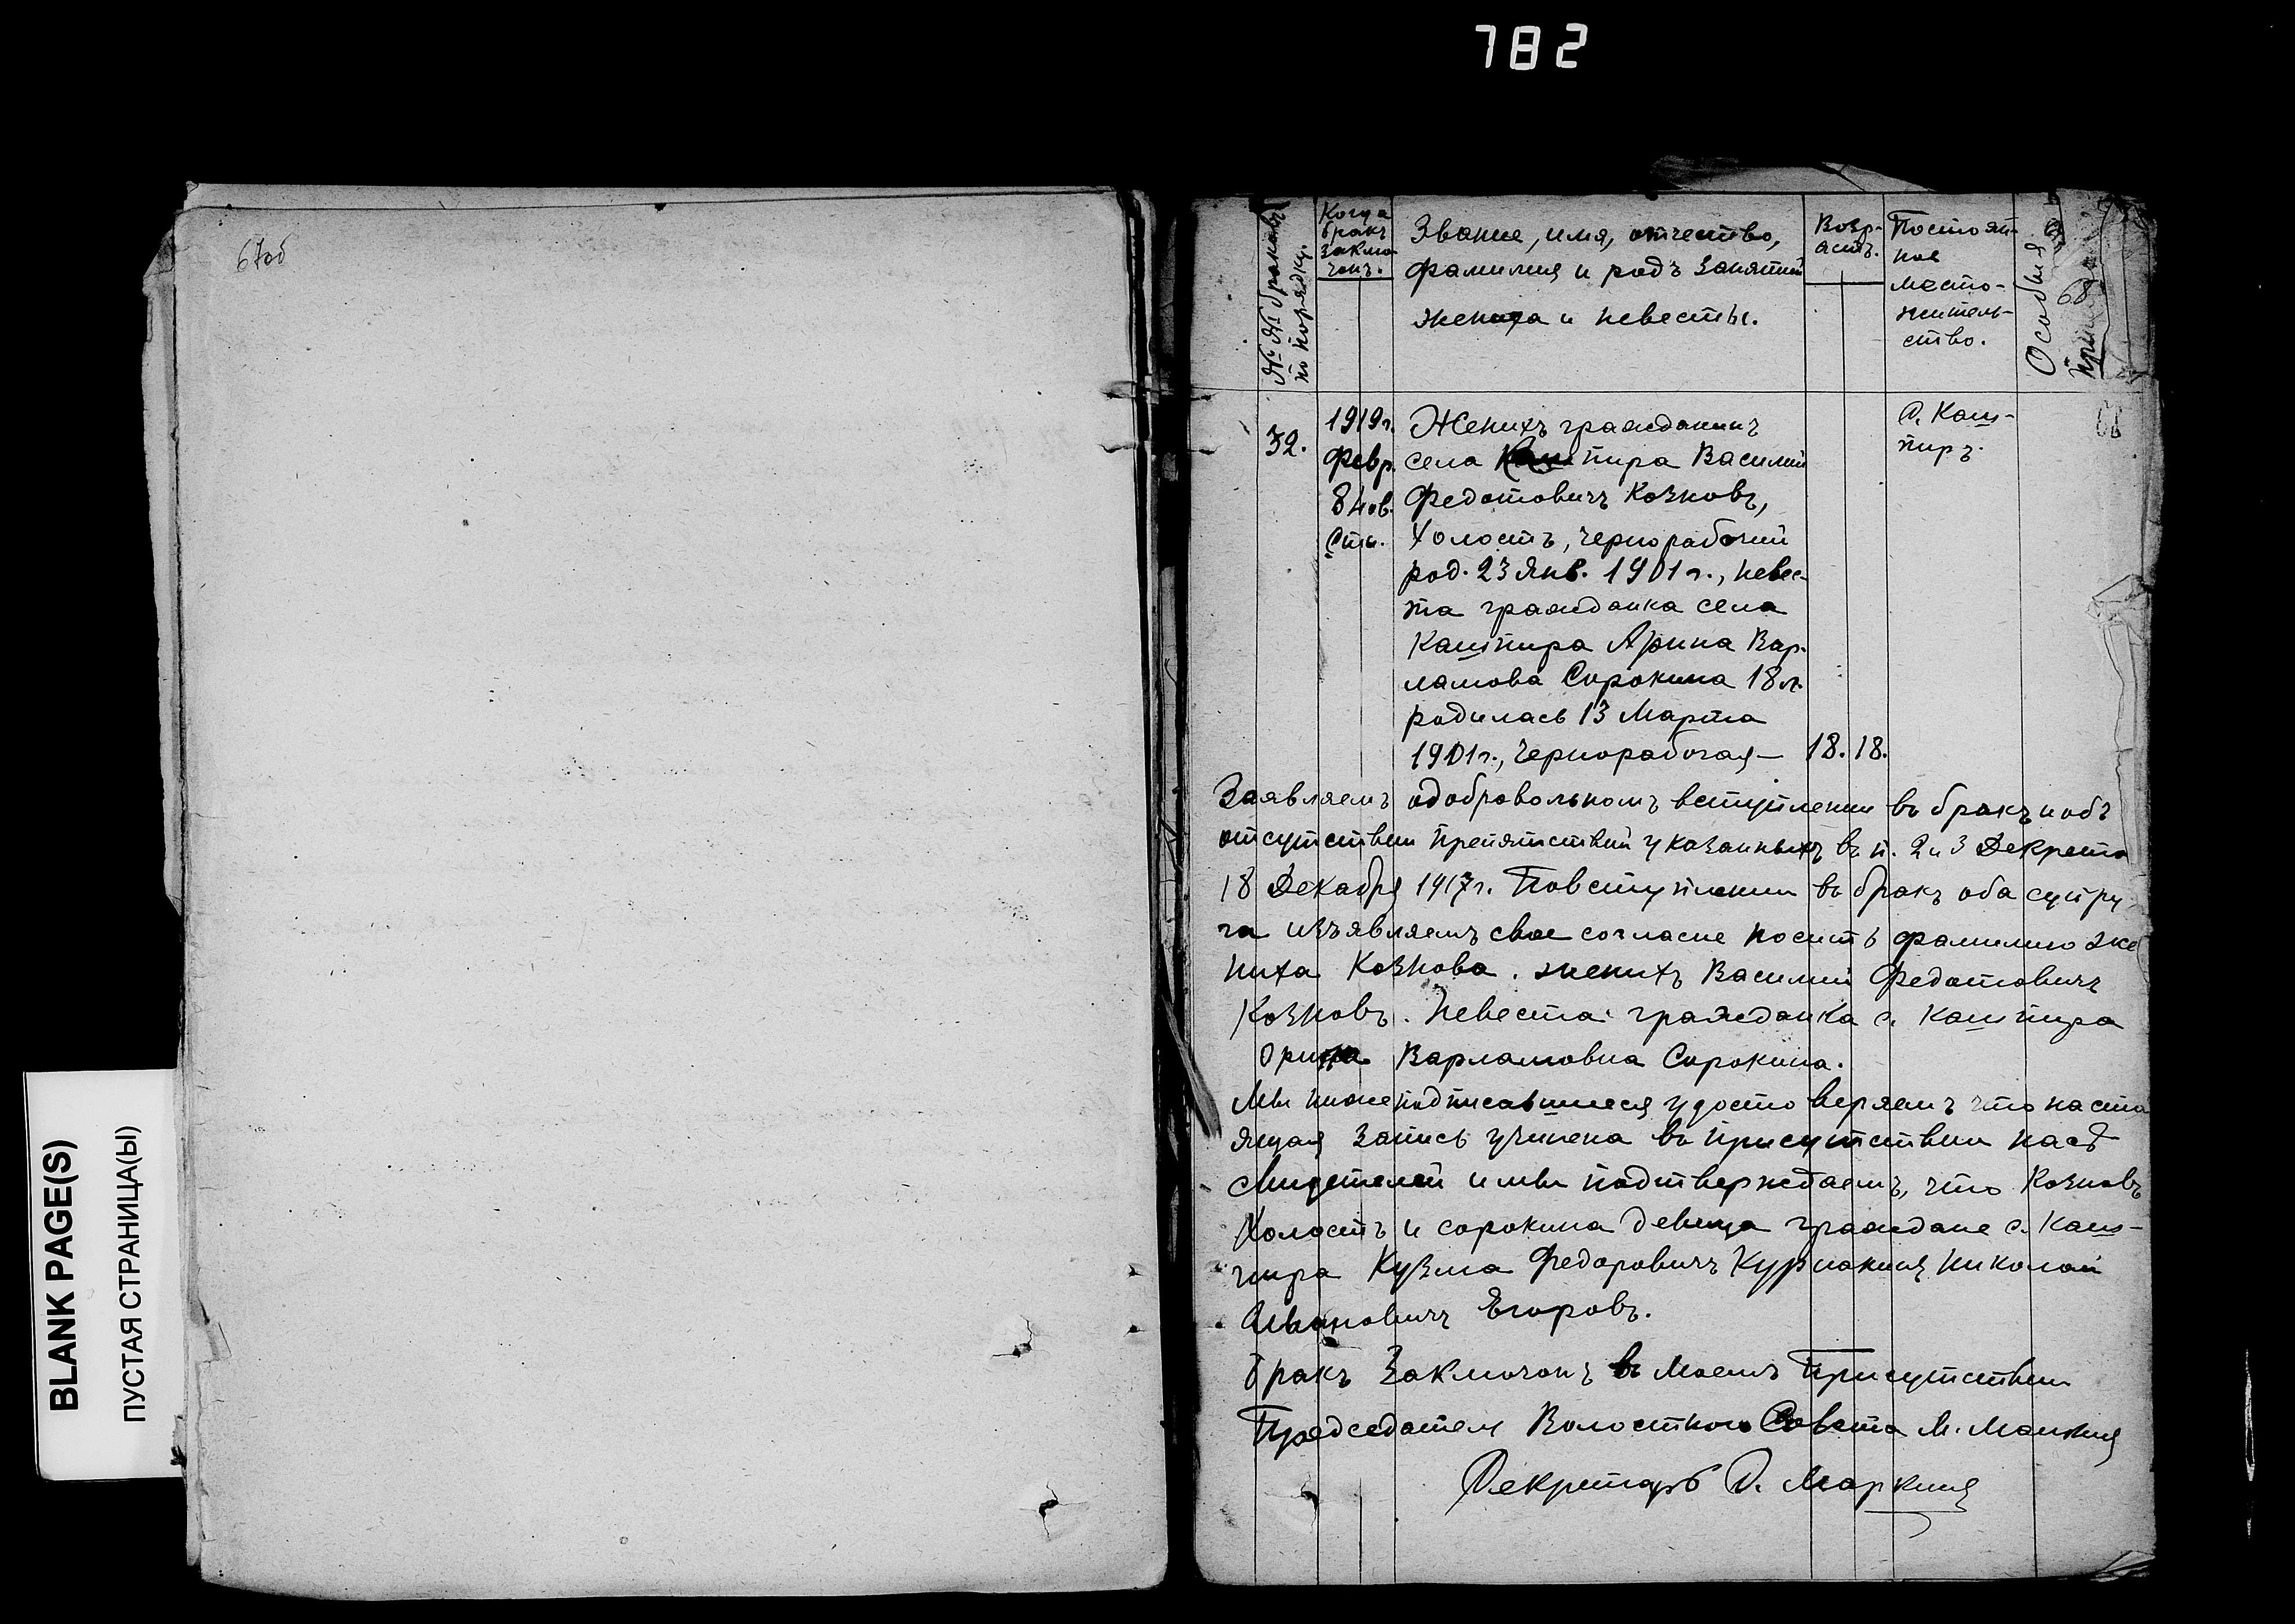 782
67об
BLANK PAGE(S)
ПУСТАЯ СТРАНИЦА(Ы)
№ № браковъ
по порядку.
Когда
бракъ
заклю-
чонъ.
Звание, имя, отчество,
фамилия и родъ занятий
жениха и невесты.
Возр-
астъ.
Постоян-
ное
место-
житель-
ство.
Особыя
68
32.
1919г.
Февр.
8 нов.
сти.
Женихъ гражданинъ
села Кашпира Василий
Федотовичъ Козновъ,
холостъ, чернорабочий
род. 23 Янв. 1901 г., невес-
та гражданка села
Кашпира Арина Вар-
ламова Сорокина 18 л.
родилась 13 Марта
1901 г., Чернорабочая —
18. 18.
С. Каш-
пиръ.
Заявляемъ о добровольномъ вступлении въ бракъ и объ
отсутствии препятствий указанныхъ въ п. 2 и 3 Декрета
18 Декабря 1917 г. По вступлении въ бракъ оба супру-
га изъявляемъ свое согласие носить фамилию же
ниха Кознова. женихъ Василий Федотовичъ
Козновъ. Невеста гражданка с. Кашпира
Орина Варламовна Сорокина.
Мы нижеподписавшиеся удостоверяемъ что наста
ящая запись учинена въ присутствии насъ
свидетелей и мы подтверждаемъ, что Козновъ
Холостъ и сорокина девица граждане с. Каш-
пира Кузма Федоровичъ Курмакинъ, Николай
Ивановичъ Егоровъ.
бракъ Заключонъ въ моемъ Присутствии
Председатель Волостного Совета М. Манкинъ
Секретарь С. Маркинъ